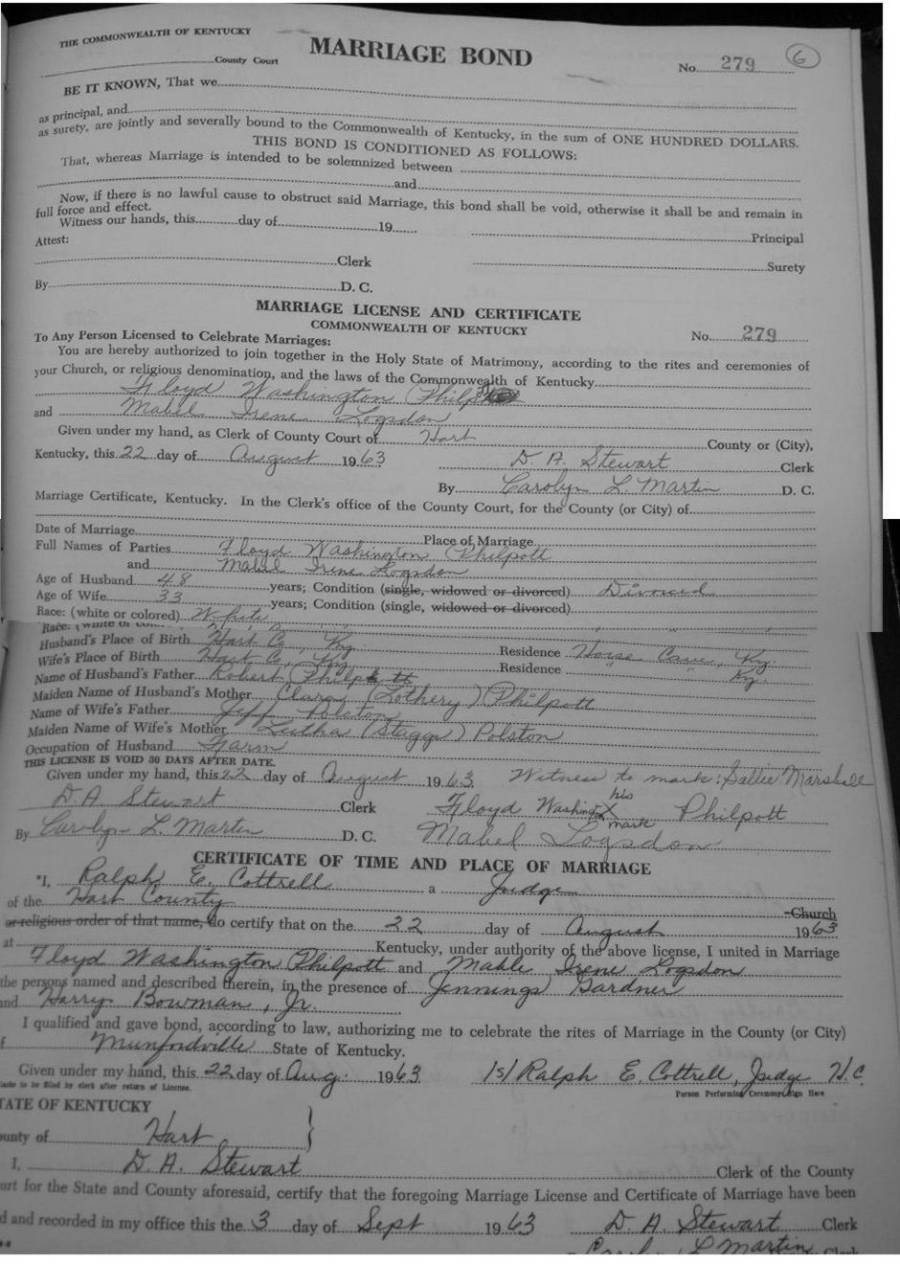 THE COMMONWEALTH OF KENTUCKY
MARRIAGE BOND
County Court
No. 279 6
BE IT KNOWN, That we
as principal, and
as surety, are jointly and severally bound to the Commonwealth of Kentucky, in the sum of ONE HUNDRED DOLLARS.
THIS BOND IS CONDITIONED AS FOLLOWS:
That, whereas Marriage is intended to be solemnized between
and
Now, if there is no lawful cause to obstruct said Marriage, this bond shall be void, otherwise it shall be and remain in
full force and effect.
Witness our hands, this day of 19
Principal
Attest:
Clerk
Surety
By D. C.
MARRIAGE LICENSE AND CERTIFICATE
COMMONWEALTH OF KENTUCKY
No. 279
To Any Person Licensed to Celebrate Marriages:
You are hereby authorized to join together in the Holy State of Matrimony, according to the rites and ceremonies of
your Church, or religious denomination, and the laws of the Commonwealth of Kentucky
Floyd Washington
and Mabel Irene Logsdon
Given under my hand, as Clerk of County Court of Hart County or (City),
Kentucky, this 22 day of August 1963 D. A. Stewart Clerk
By Carolyn L. Martin D. C.
Marriage Certificate, Kentucky. In the Clerk's office of the County Court, for the County (or City) of
Date of Marriage Place of Marriage
Full Names of Parties Floyd Washington Philpott
and Mabel Irene Logsdon
Age of Husband 48 years; Condition (single, widowed or divorced) Divorced
Age of Wife 33 years; Condition (single, widowed or divorced)
Race: (white or colored) White
Race: (white or
Husband's Place of Birth Hart Co, Ky. Residence Horse Cave, Ky.
Wife's Place of Birth Hart Co, Ky Residence " " Ky.
Name of Husband's Father Robert Philpott
Maiden Name of Husband's Mother Clara (Lothery) Philpott
Name of Wife's Father Jeff Polston
Maiden Name of Wife's Mother (Staggs) Polston
Occupation of Husband Farm
THIS LICENSE IS VOID 30 DAYS AFTER DATE.
Given under my hand, this 22 day of August 1963. Witness to mark: Sallie Marshall
his
D. A. Stewart Clerk Floyd Washing X Philpott
mark
By Carolyn L. Martin D. C. Mabel Logsdon
CERTIFICATE OF TIME AND PLACE OF MARRIAGE
"I, Ralph E. Cottrell a Judge
of the Hart County Church
or religious order of that name, do certify that on the 22 day of August 1963
at Kentucky, under authority of the above license, I united in Marriage
Floyd Washington Philpott and Mable Irene Logsdon
the persons named and described therein, in the presence of Jennings Gardner
and Harry Bowman, Jr.
I qualified and gave bond, according to law, authorizing me to celebrate the rites of Marriage in the County (or City)
f Munfordville State of Kentucky.
Given under my hand, this 22 day of Aug. 1963 /s/ Ralph E. Cottrell, Judge H.C.
to be filed by clerk after return of License. Person Performing Ceremony Sign Here
TATE OF KENTUCKY
ounty of Hart }
I, D. A. Stewart Clerk of the County
urt for the State and County aforesaid, certify that the foregoing Marriage License and Certificate of Marriage have been
d and recorded in my office this the 3 day of Sept 1963 D. A. Stewart Clerk
Carolyn L Martin Clerk